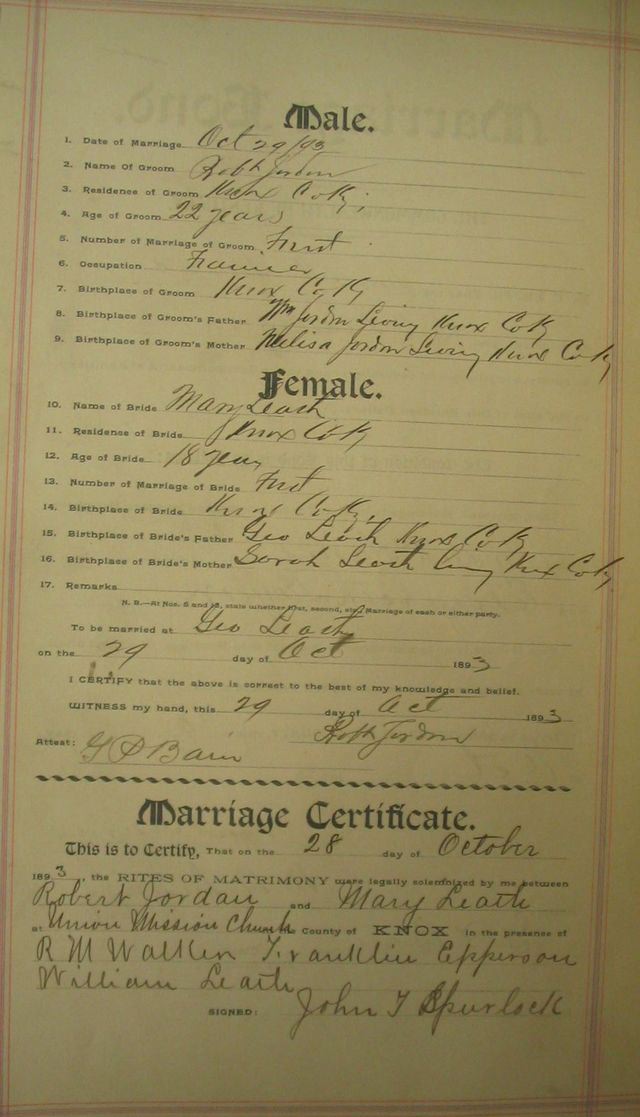 Male.
1. Date of Marriage Oct 29/93
2. Name Of Groom Robt Jordon
3. Residence of Groom Knox Co Ky;
4. Age of Groom 22 years
5. Number of Marriage of Groom First
6. Occupation Farmer
7. Birthplace of Groom Knox Co Ky
8. Birthplace of Groom's Father Wm Jordon Living Knox Co Ky
9. Birthplace of Groom's Mother Melisa Jordon Living Knox Co Ky
Female.
10. Name of Bride Mary Leath
11. Residence of Bride Knox Co Ky
12. Age of Bride 18 years
13. Number of Marriage of Bride First
14. Birthplace of Bride Knox Co Ky,
15. Birthplace of Bride's Father Geo Leath Knox Co Ky
16. Birthplace of Bride's Mother Sarah Leath Living Knox Co Ky
17. Remarks
N. B.—At Nos. 5 and 13, state whether first, second, etc., Marriage of each or either party.
To be married at Geo Leath
on the 29 day of Oct 1893
I CERTIFY that the above is correct to the best of my knowledge and belief.
WITNESS my hand, this 29 day of Oct 1893
Robt Jordon
Attest: G P Bain
Marriage Certificate.
This is to Certify, That on the 28 day of October
1893, the RITES OF MATRIMONY were legally solemnized by me between
Robert Jordan and Mary Leath
at Union Mission Church the County of KNOX in the presence of
R M Walker Franklin Epperson
William Leath
SIGNED: John T Spurlock